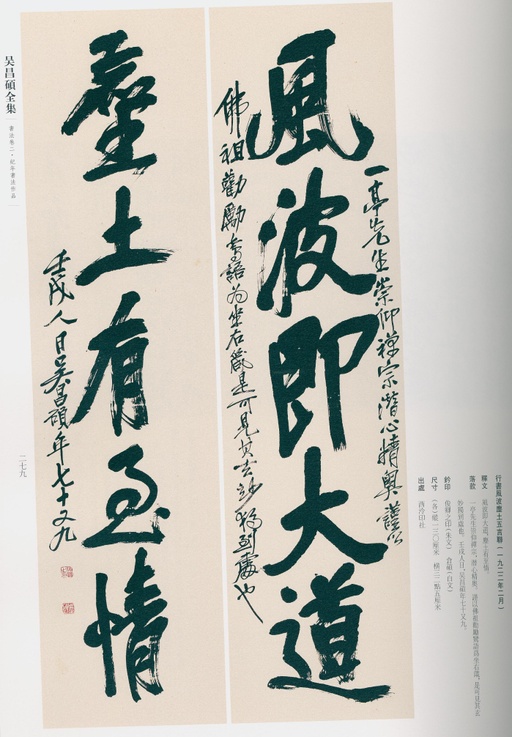 風波即大道
一亭先生崇仰禪宗潛心精奧謹以
佛祖勸勵嘗語為坐右箴是可見其玄妙獨到處也
塵土有至情
壬戌人日吳昌碩年七十又九
吴昌碩全集
書法卷二·紀年書法作品
二七九
行書風波塵土五言聯(一九二二年二月)
釋文 風波即大道，塵土有至情。
落款 一亭先生崇仰禪宗，潛心精奧，謹以佛祖勸勵嘗語爲坐右箴，是可見其玄
妙獨到處也。壬戌人日，吳昌碩年七十又九。
鈐印 俊卿之印(朱文) 倉碩(白文)
尺寸 (各)縱一三〇厘米 橫三二點五厘米
出處 西泠印社